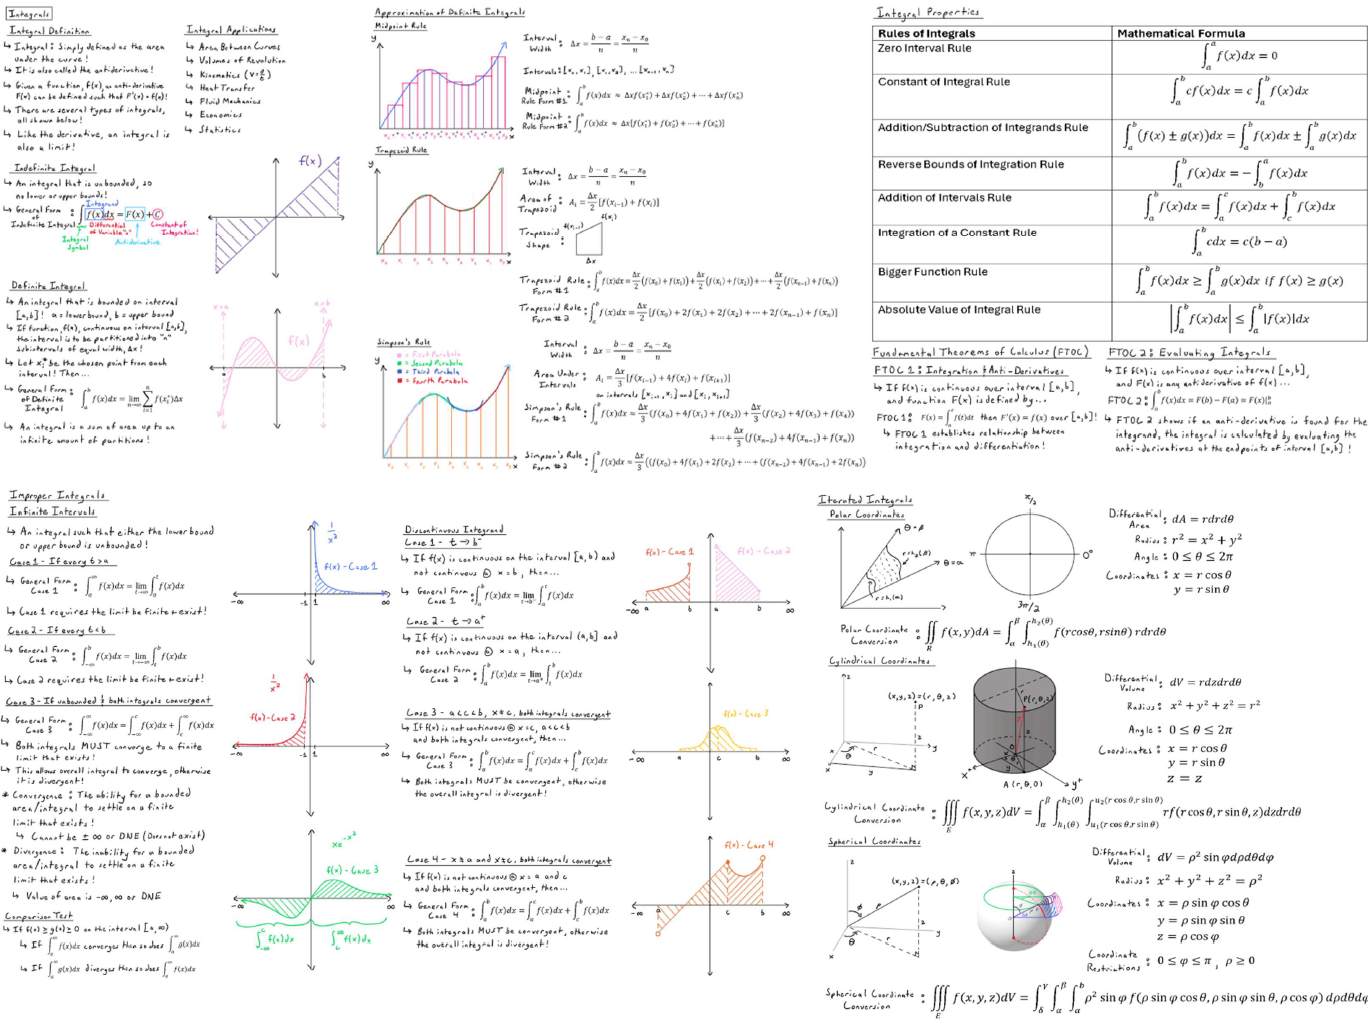 Integrals
Integral Definition
↳ Integral: Simply defined as the area
under the curve!
↳ It is also called the antiderivative!
↳ Given a function, f(x), an antiderivative
F(x) can be defined such that F'(x) = f(x)!
↳ There are several types of integrals,
all shown below!
↳ Like the derivative, an integral is
also a limit!
Integral Applications
↳ Area Between Curves
↳ Volumes of Revolution
↳ Kinematics
↳ Heat Transfer
↳ Fluid Mechanics
↳ Economics
↳ Statistics
Indefinite Integral
↳ An integral that is unbounded, so
no lower or upper bounds!
↳ General Form of Indefinite Integral : ∫ f(x)dx = F(x) + C
Integrand
Differential of Variable "x"
Constant of Integration!
Integral Symbol
Antiderivative
f(x)
Definite Integral
↳ An integral that is bounded on interval
[a,b]! a = lower bound, b = upper bound
↳ If function, f(x), continuous on interval [a,b],
the interval is to be partitioned into "n"
subintervals of equal width, Δx!
↳ Let xᵢ* be the chosen point from each
interval! Then...
↳ General Form of Definite Integral : ∫ₐᵇ f(x)dx = lim n→∞ Σ f(xᵢ*)Δx
↳ An integral is a sum of area up to an
infinite amount of partitions!
x=a
x=b
f(x)
Approximation of Definite Integrals
Midpoint Rule
Interval Width : Δx = (b − a)/n = (xₙ − x₀)/n
Intervals: [x₀, x₁], [x₁, x₂], ... [xₙ₋₁, xₙ]
Midpoint Rule Form #1 : ∫ₐᵇ f(x)dx ≈ Δxf(x₁*) + Δxf(x₂*) + ⋯ + Δxf(xₙ*)
Midpoint Rule Form #2 : ∫ₐᵇ f(x)dx ≈ Δx[f(x₁*) + f(x₂*) + ⋯ + f(xₙ*)]
Trapezoid Rule
Interval Width : Δx = (b − a)/n = (xₙ − x₀)/n
Area of Trapezoid : Aᵢ = Δx/2 [f(xᵢ₋₁) + f(xᵢ)]
Trapezoid Shape : f(xᵢ₋₁) f(xᵢ) Δx
Trapezoid Rule Form #1 : ∫ₐᵇ f(x)dx = Δx/2 (f(x₀) + f(x₁)) + Δx/2 (f(x₁) + f(x₂)) + ⋯ + Δx/2 (f(xₙ₋₁) + f(xₙ))
Trapezoid Rule Form #2 : ∫ₐᵇ f(x)dx = Δx/2 [f(x₀) + 2f(x₁) + 2f(x₂) + ⋯ + 2f(xₙ₋₁) + f(xₙ)]
Simpson's Rule
= First Parabola
= Second Parabola
= Third Parabola
= Fourth Parabola
Interval Width : Δx = (b − a)/n = (xₙ − x₀)/n
Area Under Intervals : Aᵢ = Δx/3 [f(xᵢ₋₁) + 4f(xᵢ) + f(xᵢ₊₁)]
on intervals [xᵢ₋₁, xᵢ] and [xᵢ, xᵢ₊₁]
Simpson's Rule #1 : ∫ₐᵇ f(x)dx = Δx/3 (f(x₀) + 4f(x₁) + f(x₂)) + Δx/3 (f(x₂) + 4f(x₃) + f(x₄))
+ ⋯ + Δx/3 (f(xₙ₋₂) + 4f(xₙ₋₁) + f(xₙ))
Simpson's Rule Form #2 : ∫ₐᵇ f(x)dx = Δx/3 ((f(x₀) + 4f(x₁) + 2f(x₂) + ⋯ + (f(xₙ₋₂) + 4f(xₙ₋₁) + 2f(xₙ))
Integral Properties
Rules of Integrals Mathematical Formula
Zero Interval Rule ∫ₐᵃ f(x)dx = 0
Constant of Integral Rule ∫ₐᵇ cf(x)dx = c ∫ₐᵇ f(x)dx
Addition/Subtraction of Integrands Rule ∫ₐᵇ (f(x) ± g(x))dx = ∫ₐᵇ f(x)dx ± ∫ₐᵇ g(x)dx
Reverse Bounds of Integration Rule ∫ₐᵇ f(x)dx = −∫_b^a f(x)dx
Addition of Intervals Rule ∫ₐᵇ f(x)dx = ∫ₐᶜ f(x)dx + ∫_c^b f(x)dx
Integration of a Constant Rule ∫ₐᵇ cdx = c(b − a)
Bigger Function Rule ∫ₐᵇ f(x)dx ≥ ∫ₐᵇ g(x)dx if f(x) ≥ g(x)
Absolute Value of Integral Rule |∫ₐᵇ f(x)dx| ≤ ∫ₐᵇ |f(x)|dx
Fundamental Theorems of Calculus (FTOC)
FTOC 1: Integration & Anti-Derivatives
↳ If f(x) is continuous over interval [a,b],
and function F(x) is defined by...
FTOC 1: F(x) = ∫ₐˣ f(t)dt then F'(x) = f(x) over [a,b]!
↳ FTOC 1 establishes relationship between
integration and differentiation!
FTOC 2: Evaluating Integrals
↳ If f(x) is continuous over interval [a,b],
and F(x) is any antiderivative of f(x)...
FTOC 2: ∫ₐᵇ f(x)dx = F(b) − F(a) = F(x)|ₐᵇ
↳ FTOC 2 shows if an anti-derivative is found for the
integrand, the integral is calculated by evaluating the
anti-derivatives at the endpoints of interval [a,b]!
Improper Integrals
Infinite Intervals
↳ An integral such that either the lower bound
or upper bound is unbounded!
Case 1 - If every t > a
↳ General Form Case 1 : ∫ₐ^∞ f(x)dx = lim t→∞ ∫ₐᵗ f(x)dx
↳ Case 1 requires the limit be finite & exist!
Case 2 - If every t < b
↳ General Form Case 2 : ∫_−∞^b f(x)dx = lim t→−∞ ∫_t^b f(x)dx
↳ Case 2 requires the limit be finite & exist!
Case 3 - If unbounded & both integrals convergent
↳ General Form Case 3 : ∫_−∞^∞ f(x)dx = ∫_−∞^c f(x)dx + ∫_c^∞ f(x)dx
↳ Both integrals MUST converge to a finite
limit that exists!
↳ This allows overall integral to converge, otherwise
it is divergent!
* Convergence : The ability for a bounded
area/integral to settle on a finite
limit that exists!
↳ Cannot be ± ∞ or DNE (Does not exist)
* Divergence : The inability for a bounded
area/integral to settle on a finite
limit that exists!
↳ Value of area is -∞, ∞ or DNE
Comparison Test
↳ If f(x) ≥ g(x) ≥ 0 on the interval [a, ∞)
↳ If ∫ₐ^∞ f(x)dx converges then so does ∫ₐ^∞ g(x)dx
↳ If ∫ₐ^∞ g(x)dx diverges then so does ∫ₐ^∞ f(x)dx
1/x²
f(x) - Case 1
-∞ -1 1 ∞
1/x²
f(x) - Case 2
-∞ -1 ∞
xe^-x²
f(x) - Case 3
-∞ ∞
∫_-∞^c f(x)dx ∫_c^∞ f(x)dx
Discontinuous Integrand
Case 1 - t → b⁻
↳ If f(x) is continuous on the interval [a, b) and
not continuous @ x = b, then...
↳ General Form Case 1 : ∫ₐᵇ f(x)dx = lim t→b⁻ ∫ₐᵗ f(x)dx
Case 2 - t → a⁺
↳ If f(x) is continuous on the interval (a, b] and
not continuous @ x = a, then...
↳ General Form Case 2 : ∫ₐᵇ f(x)dx = lim t→a⁺ ∫_t^b f(x)dx
Case 3 - a < c < b, x ≠ c, both integrals convergent
↳ If f(x) is not continuous @ x = c, a < c < b
and both integrals convergent, then...
↳ General Form Case 3 : ∫ₐᵇ f(x)dx = ∫ₐᶜ f(x)dx + ∫_c^b f(x)dx
↳ Both integrals MUST be convergent, otherwise
the overall integral is divergent!
Case 4 - x ≠ a and x ≠ c, both integrals convergent
↳ If f(x) is not continuous @ x = a and c
and both integrals convergent, then...
↳ General Form Case 4 : ∫ₐᵇ f(x)dx = ∫ₐᶜ f(x)dx + ∫_c^b f(x)dx
↳ Both integrals MUST be convergent, otherwise
the overall integral is divergent!
f(x) - Case 1
f(x) - Case 2
-∞ a b a b ∞
f(x) - Case 3
-∞ a c b ∞
f(x) - Case 4
-∞ a c b ∞
Iterated Integrals
Polar Coordinates
θ = β
r = h₂(θ)
θ = α
r = h₁(θ)
π/2
π
0°
3π/2
Differential Area : dA = rdrdθ
Radius : r² = x² + y²
Angle : 0 ≤ θ ≤ 2π
Coordinates : x = r cos θ
y = r sin θ
Polar Coordinate Conversion : ∬_R f(x, y)dA = ∫_α^β ∫_h₁(θ)^h₂(θ) f(rcosθ, rsinθ) rdrdθ
Cylindrical Coordinates
(x, y, z) = (r, θ, z)
P
P(r, θ, z)
A (r, θ, 0)
Differential Volume : dV = rdzdrdθ
Radius : x² + y² + z² = r²
Angle : 0 ≤ θ ≤ 2π
Coordinates : x = r cos θ
y = r sin θ
z = z
Cylindrical Coordinate Conversion : ∭_E f(x, y, z)dV = ∫_α^β ∫_h₁(θ)^h₂(θ) ∫_u₁(r cos θ,r sin θ)^u₂(r cos θ,r sin θ) rf(r cos θ, r sin θ, z)dzdrdθ
Spherical Coordinates
(x, y, z) = (ρ, θ, ϕ)
Differential Volume : dV = ρ² sin φdρdθdφ
Radius : x² + y² + z² = ρ²
Coordinates : x = ρ sin φ cos θ
y = ρ sin φ sin θ
z = ρ cos φ
Coordinate Restrictions : 0 ≤ φ ≤ π , ρ ≥ 0
Spherical Coordinate Conversion : ∭_E f(x, y, z)dV = ∫_δ^γ ∫_α^β ∫_a^b ρ² sin φ f(ρ sin φ cos θ, ρ sin φ sin θ, ρ cos φ) dρdθdφ